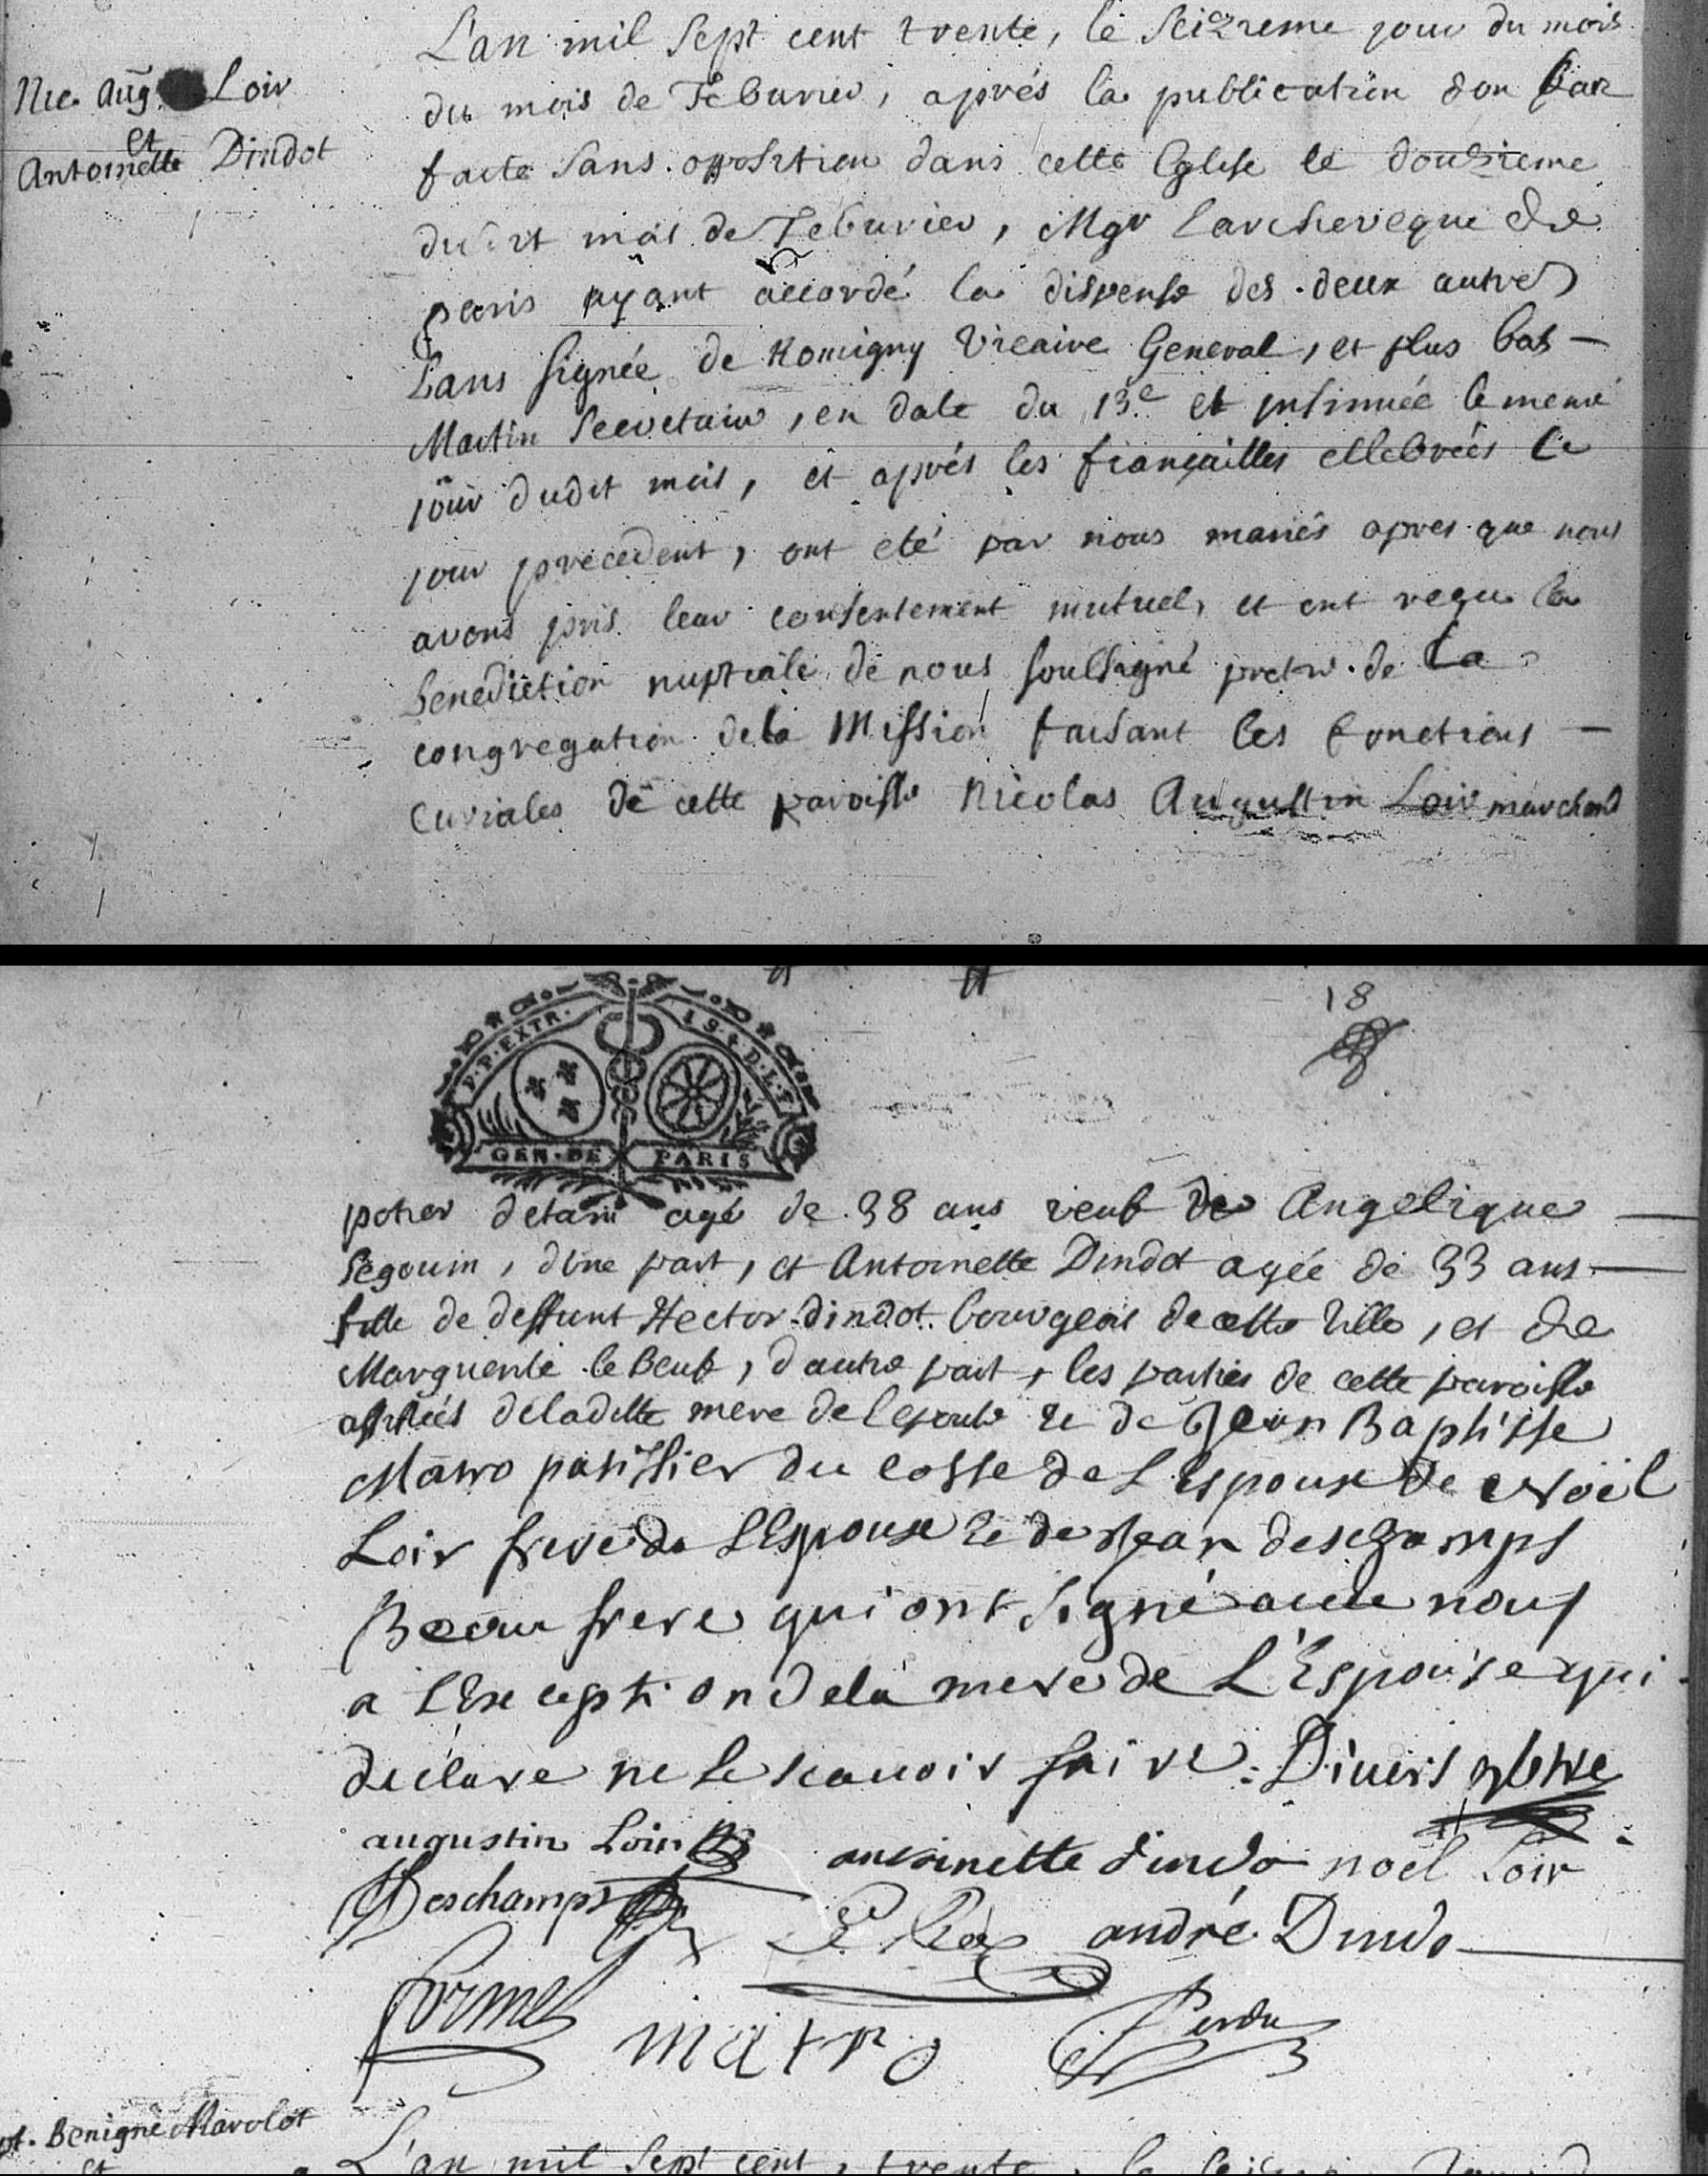 Nic. Aug. Loir
et
Antoinette Dindot
L'an mil sept cent trente, le seizieme jour du mois
du mois de Feburier, aprés la publication d'un ban
faite sans opposition dans cette Eglise le douzieme
dudit mois de Feburier, Mgr Larcheveque de
paris ayant accordé la dispense des deux autres
bans signée de Romigny Vicaire General, et plus bas —
Martin Secretaire, en date du 13e et insinuée le meme
jour dudit mois, et aprés les fiançailles cellebrées le
jour precedent, ont eté par nous mariés apres que nous
avons pris leur consentement mutuel, et ont reçu la
benediction nuptiale de nous soussigné pretre de La
congregation de la Mission faisant les fonctions —
curiales de cette paroisse Nicolas Augustin Loir marchand
18
F.P.EXTR. 1S.4D.L.F
GEN·DE PARIS
potier detain agé de 38 ans veuf de Angelique —
Segouin, dune part, et Antoinette Dindot agée de 33 ans —
fille de deffunt Hector dindot bourgeois de cette Ville, et de
Marguerite le Beuf, d'autre part, les parties de cette paroisse
assistés de laditte mere de lepouse et de Jean Baptisse
Matro patissier du costé de L'Espoux de Noël
Loir frere de L'Espoux et de Jean deschamps
Beau frere qui ont signé avec nous
a L'Exception de la mere de L'Espouse qui
declare ne le scauoir faire.
augustin Loir antoinette dindo noel Loir
Deschamps andré Dindo
matro Perdu
Benigne Marolot
et
L'an mil sept cent, trente, le